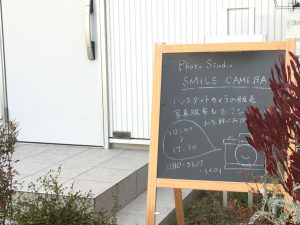 Photo Studio
SMILE CAMERA
インスタントカメラの販売
写真販売もおこなって
お気軽に
10:00
17:30
080-3307